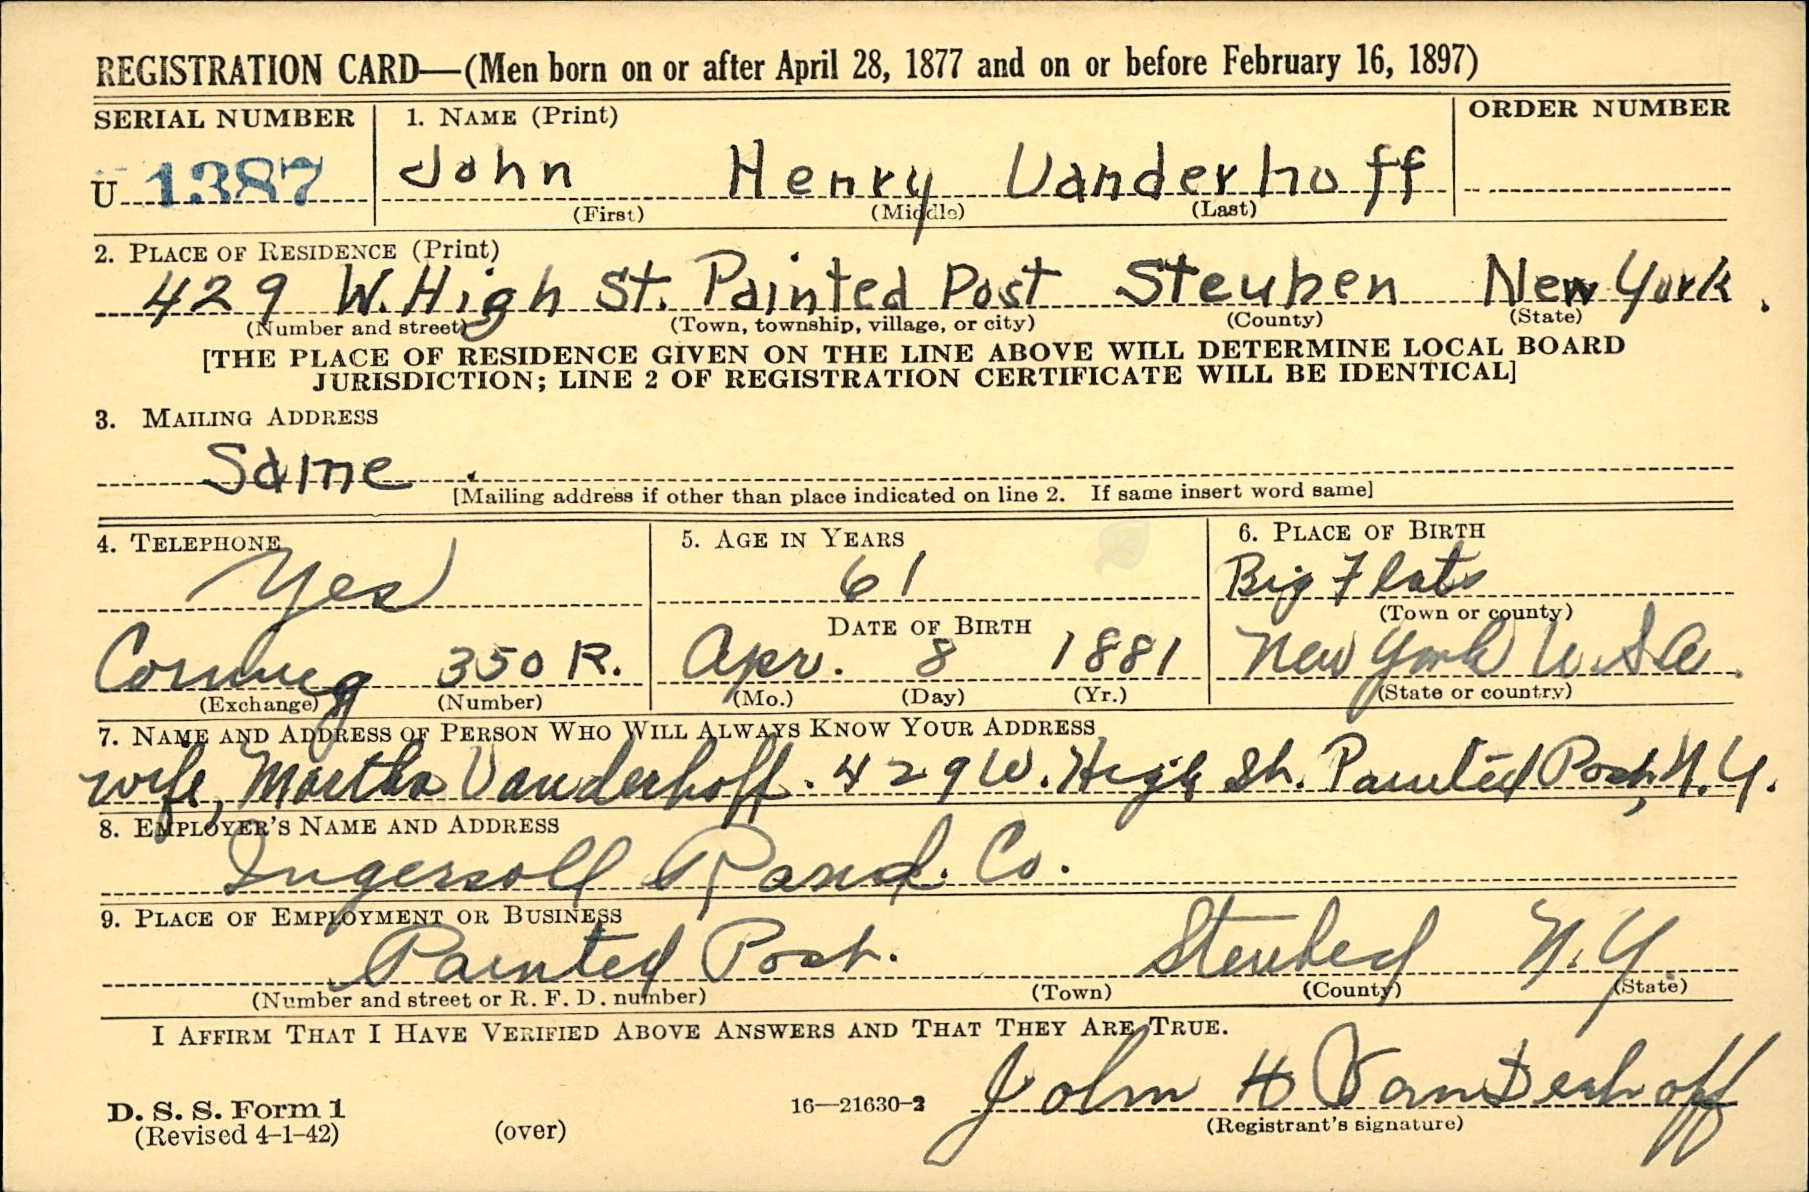 REGISTRATION CARD—(Men born on or after April 28, 1877 and on or before February 16, 1897)
SERIAL NUMBER 1. NAME (Print) ORDER NUMBER
U 1387 John Henry Vanderhoff
(First) (Middle) (Last)
2. PLACE OF RESIDENCE (Print)
429 W. High St. Painted Post Steuben New York.
(Number and street) (Town, township, village, or city) (County) (State)
[THE PLACE OF RESIDENCE GIVEN ON THE LINE ABOVE WILL DETERMINE LOCAL BOARD
JURISDICTION; LINE 2 OF REGISTRATION CERTIFICATE WILL BE IDENTICAL]
3. MAILING ADDRESS
Same.
[Mailing address if other than place indicated on line 2. If same insert word same]
4. TELEPHONE 5. AGE IN YEARS 6. PLACE OF BIRTH
Yes 61 Big Flats
DATE OF BIRTH (Town or county)
Corning 350 R. Apr. 8 1881 New York U.S.A.
(Exchange) (Number) (Mo.) (Day) (Yr.) (State or country)
7. NAME AND ADDRESS OF PERSON WHO WILL ALWAYS KNOW YOUR ADDRESS
wife, Martha Vanderhoff. 429 W. High St. Painted Post, N.Y.
8. EMPLOYER'S NAME AND ADDRESS
Ingersoll Rand. Co.
9. PLACE OF EMPLOYMENT OR BUSINESS
Painted Post. Steuben N.Y.
(Number and street or R. F. D. number) (Town) (County) (State)
I AFFIRM THAT I HAVE VERIFIED ABOVE ANSWERS AND THAT THEY ARE TRUE.
John H Vanderhoff
D. S. S. Form 1 16—21630-2
(Revised 4-1-42) (over) (Registrant's signature)